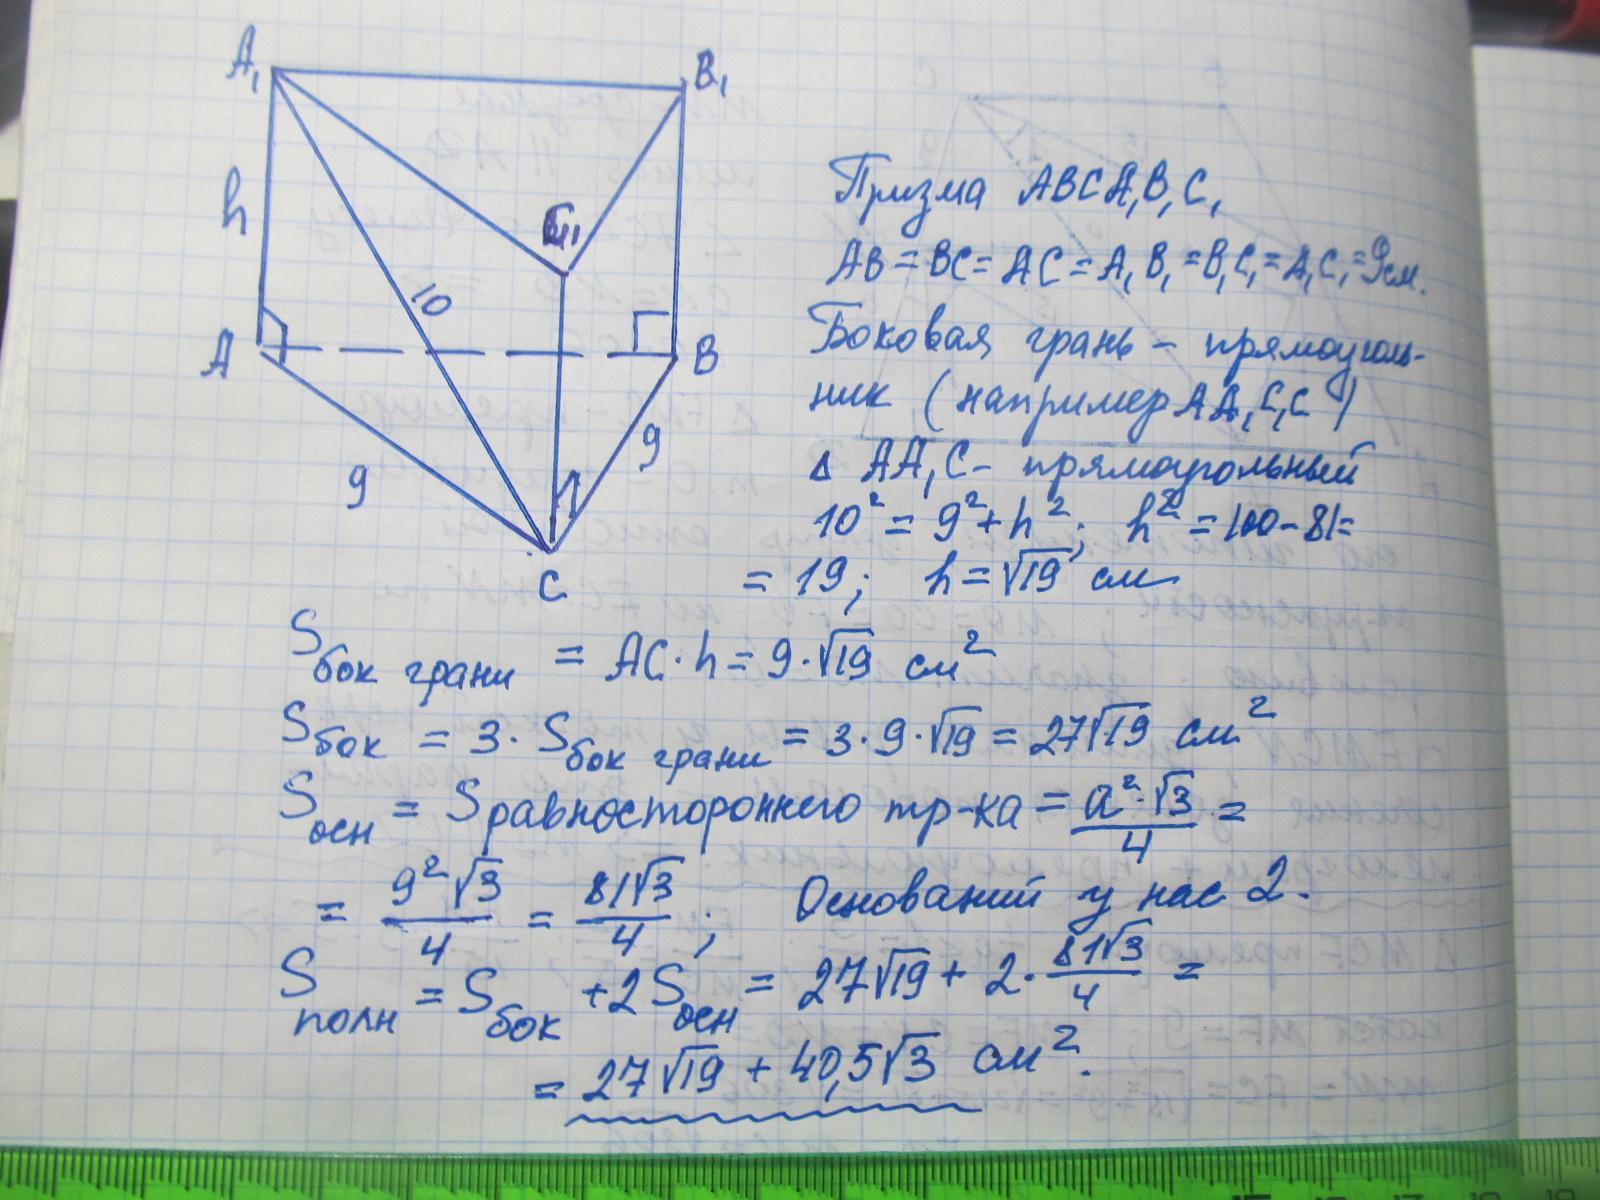 A₁
B₁
h
C₁
10
A
B
9
9
C
Призма ABCA₁B₁C₁
AB = BC = AC = A₁B₁ = B₁C₁ = A₁C₁ = 9см.
Боковая грань – прямоуголь-
ник (например AA₁C₁C)
Δ AA₁C – прямоугольный
10² = 9² + h²; h² = 100 - 81 =
= 19; h = √19 см
S бок грани = AC · h = 9 · √19 см²
S бок = 3 · S бок грани = 3 · 9 · √19 = 27√19 см²
S осн = S равностороннего тр-ка = a²·√3/4 =
= 9²√3/4 = 81√3/4; Оснований у нас 2.
S полн = S бок + 2 S осн = 27√19 + 2 · 81√3/4 =
= 27√19 + 40,5√3 см².